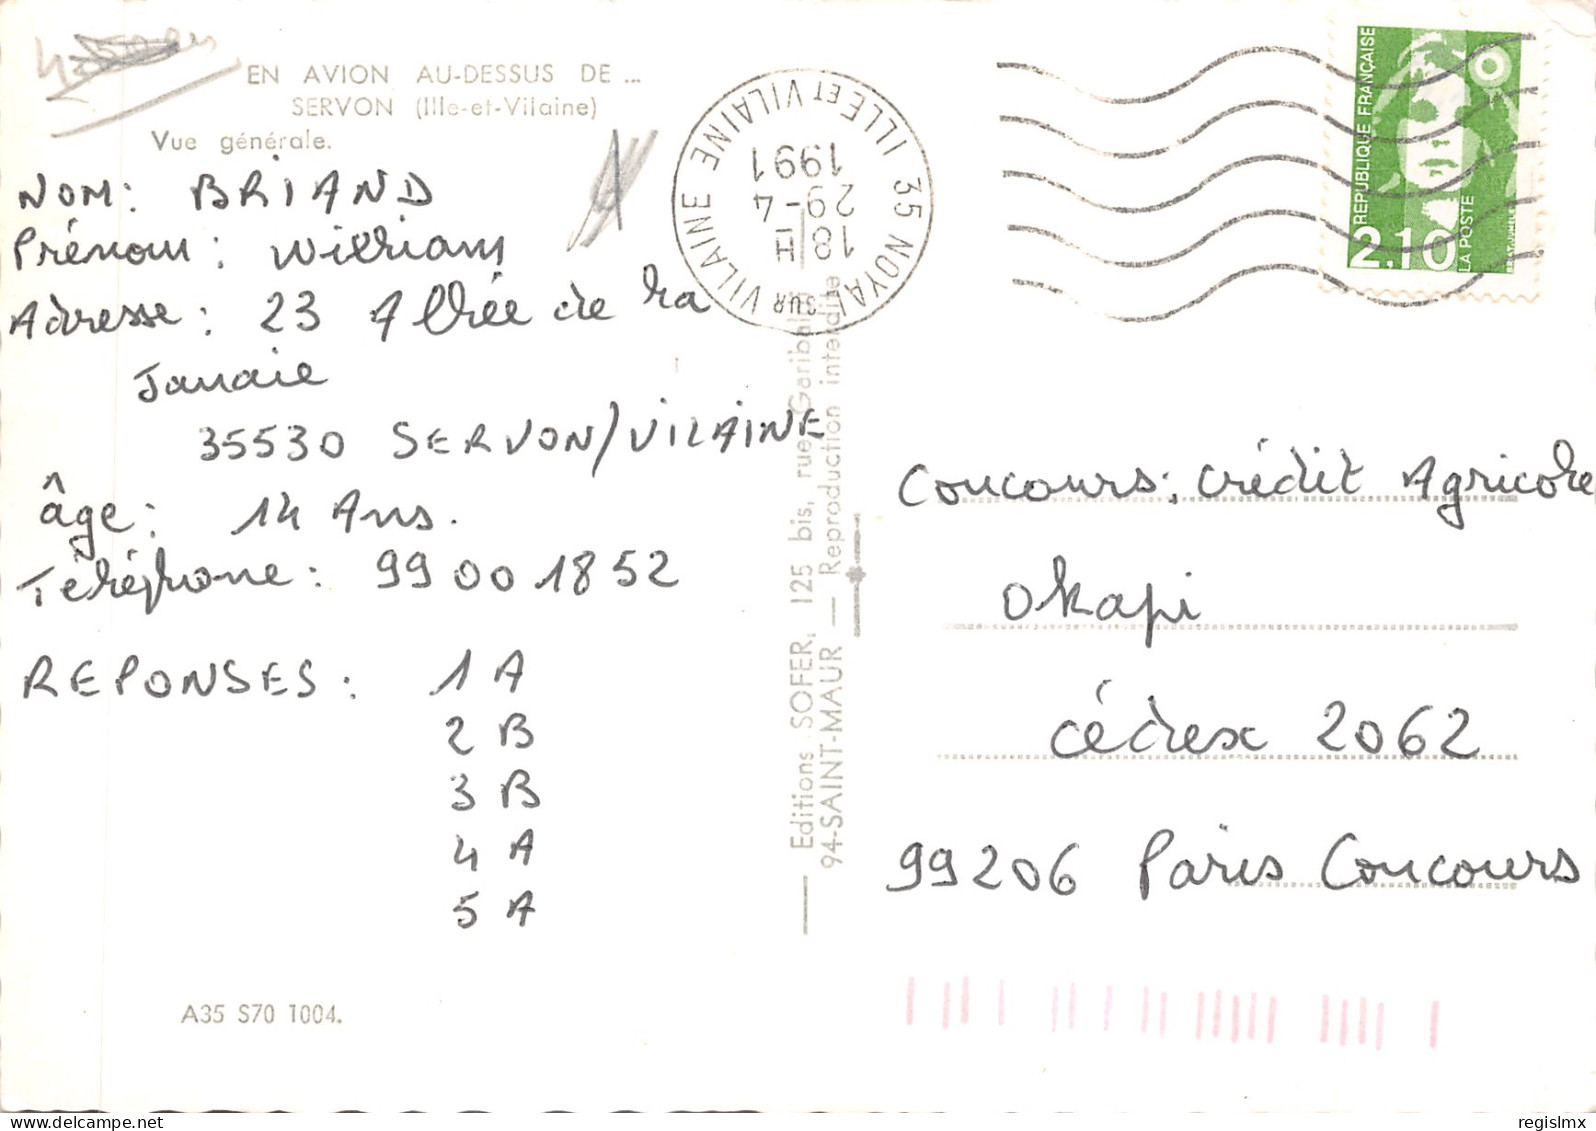 EN AVION AU-DESSUS DE ...
SERVON (Ille-et-Vilaine)
Vue générale.
NOM: BRIAND
Prénom: William
Adresse: 23 Allée de la
Janaie
35530 SERVON/VILAINE
âge: 14 Ans.
Téléphone: 99 00 18 52
REPONSES: 1 A
2 B
3 B
4 A
5 A
A35 S70 1004.
Editions SOFER, 125 bis, rue Garibaldi
94-SAINT-MAUR — Reproduction interdite
35 NOYAL SUR VILAINE
ILLE ET VILAINE
18 H
29-4
1991
REPUBLIQUE FRANÇAISE
2,10
LA POSTE
Concours: Crédit Agricole
Okapi
Cédex 2062
99206 Paris Concours
delcampe.net
regislmx